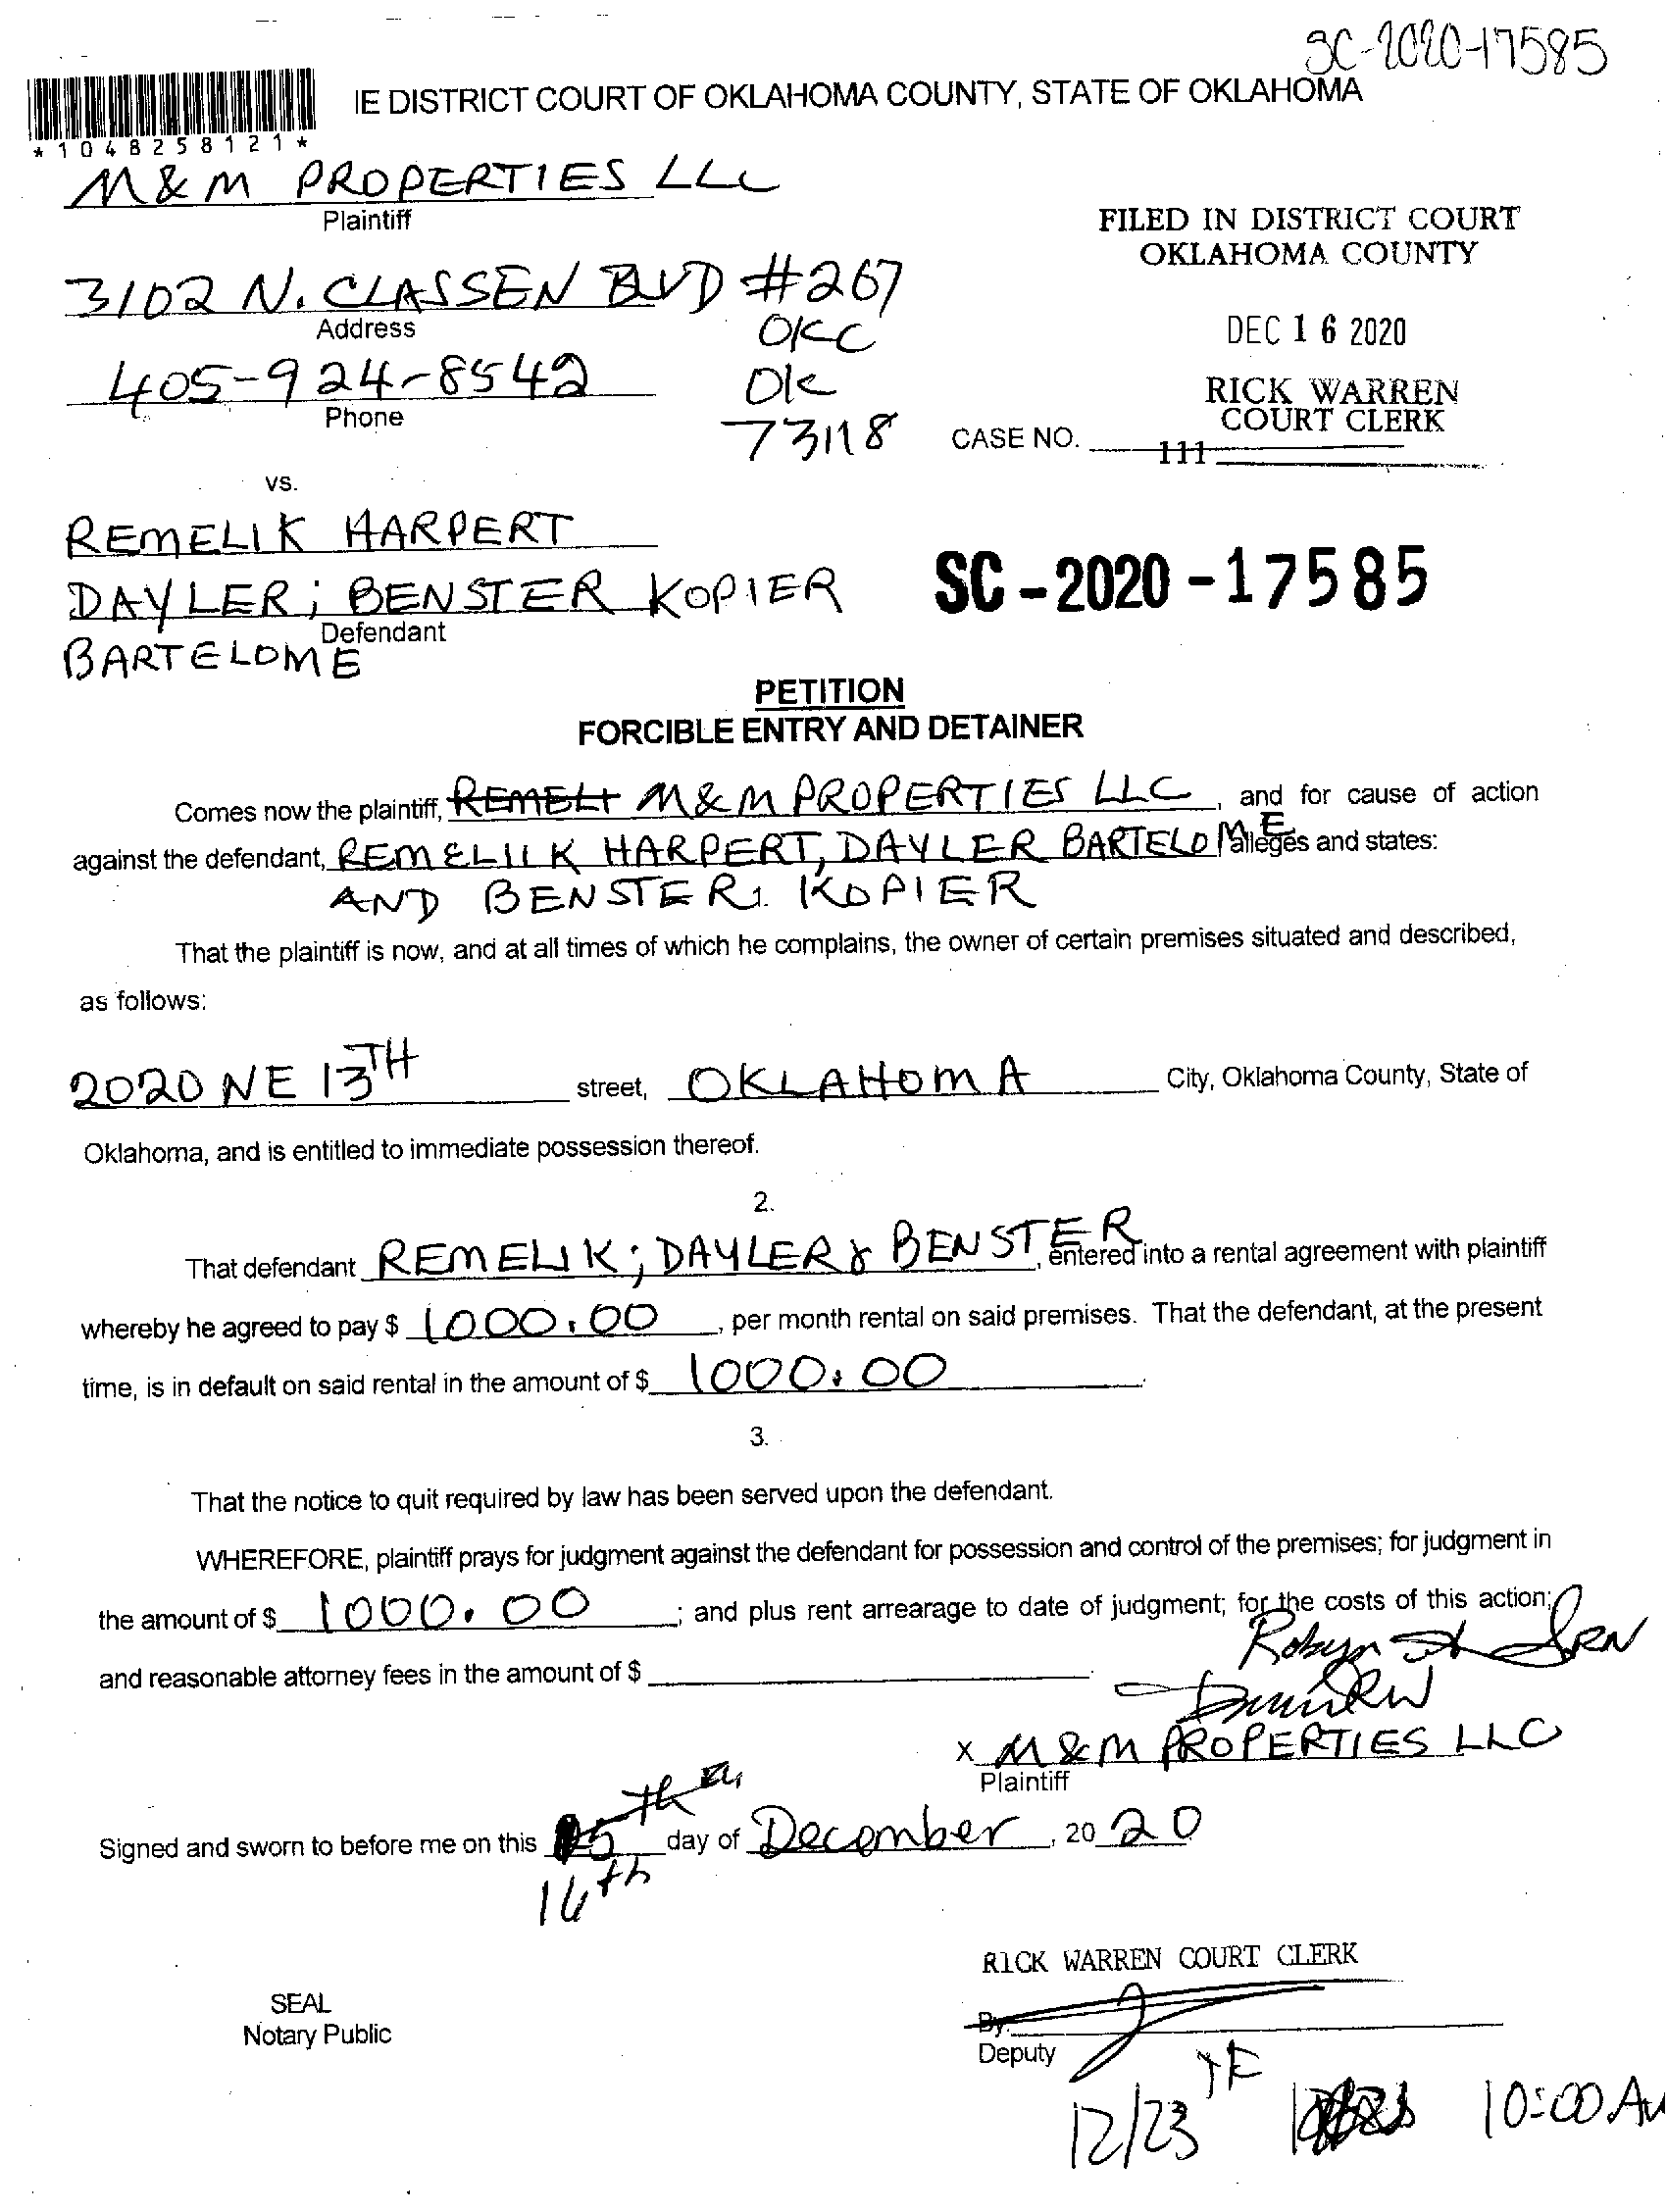 SC-2020-17585
IE DISTRICT COURT OF OKLAHOMA COUNTY, STATE OF OKLAHOMA
*1048258121*
M&M PROPERTIES LLC
Plaintiff
FILED IN DISTRICT COURT
OKLAHOMA COUNTY
3102 N. CLASSEN BLVD #267
Address
OKC
DEC 16 2020
405-924-8542
OK
Phone
RICK WARREN
COURT CLERK
73118
CASE NO.
111
vs.
REMELIK HARPERT
DAYLER; BENSTER KOPIER
SC-2020-17585
Defendant
BARTELOME
PETITION
FORCIBLE ENTRY AND DETAINER
Comes now the plaintiff, REMELI M&M PROPERTIES LLC, and for cause of action
against the defendant, REMELIIK HARPERT, DAYLER BARTELOME alleges and states:
AND BENSTER. KOPIER
That the plaintiff is now, and at all times of which he complains, the owner of certain premises situated and described,
as follows:
2020 NE 13TH street, OKLAHOMA City, Oklahoma County, State of
Oklahoma, and is entitled to immediate possession thereof.
2.
That defendant REMELIK; DAYLER & BENSTER, entered into a rental agreement with plaintiff
whereby he agreed to pay $ 1000.00, per month rental on said premises. That the defendant, at the present
time, is in default on said rental in the amount of $ 1000.00.
3.
That the notice to quit required by law has been served upon the defendant.
WHEREFORE, plaintiff prays for judgment against the defendant for possession and control of the premises; for judgment in
the amount of $ 1000.00; and plus rent arrearage to date of judgment; for the costs of this action;
and reasonable attorney fees in the amount of $
X M&M PROPERTIES LLC
Plaintiff
Signed and sworn to before me on this 15th day of December, 2020
16th
RICK WARREN COURT CLERK
SEAL
Notary Public
By:
Deputy
12/23 10:00 AM